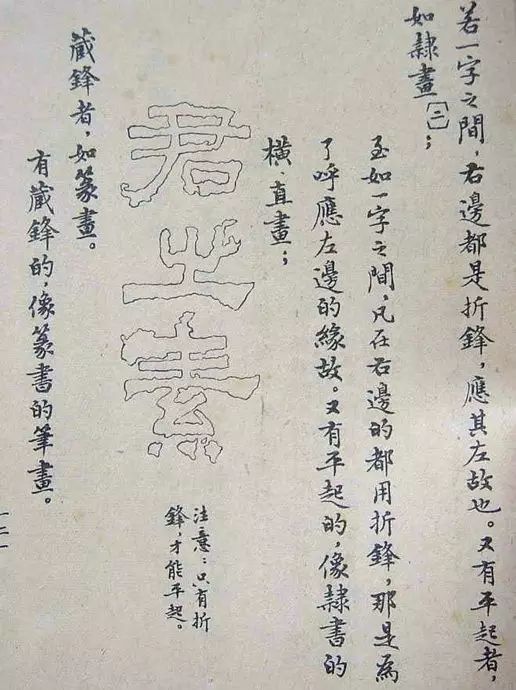 若一字之間，右邊都是折鋒，應其左故也。又有平起者，
如隸畫〔二〕；
至如一字之間，凡在右邊的都用折鋒，那是為
了呼應左邊的緣故。又有平起的，像隸書的
橫、直畫；
君之素
注意：只有折
鋒，才能平起。
藏鋒者，如篆畫。
有藏鋒的，像篆書的筆畫。
一二一